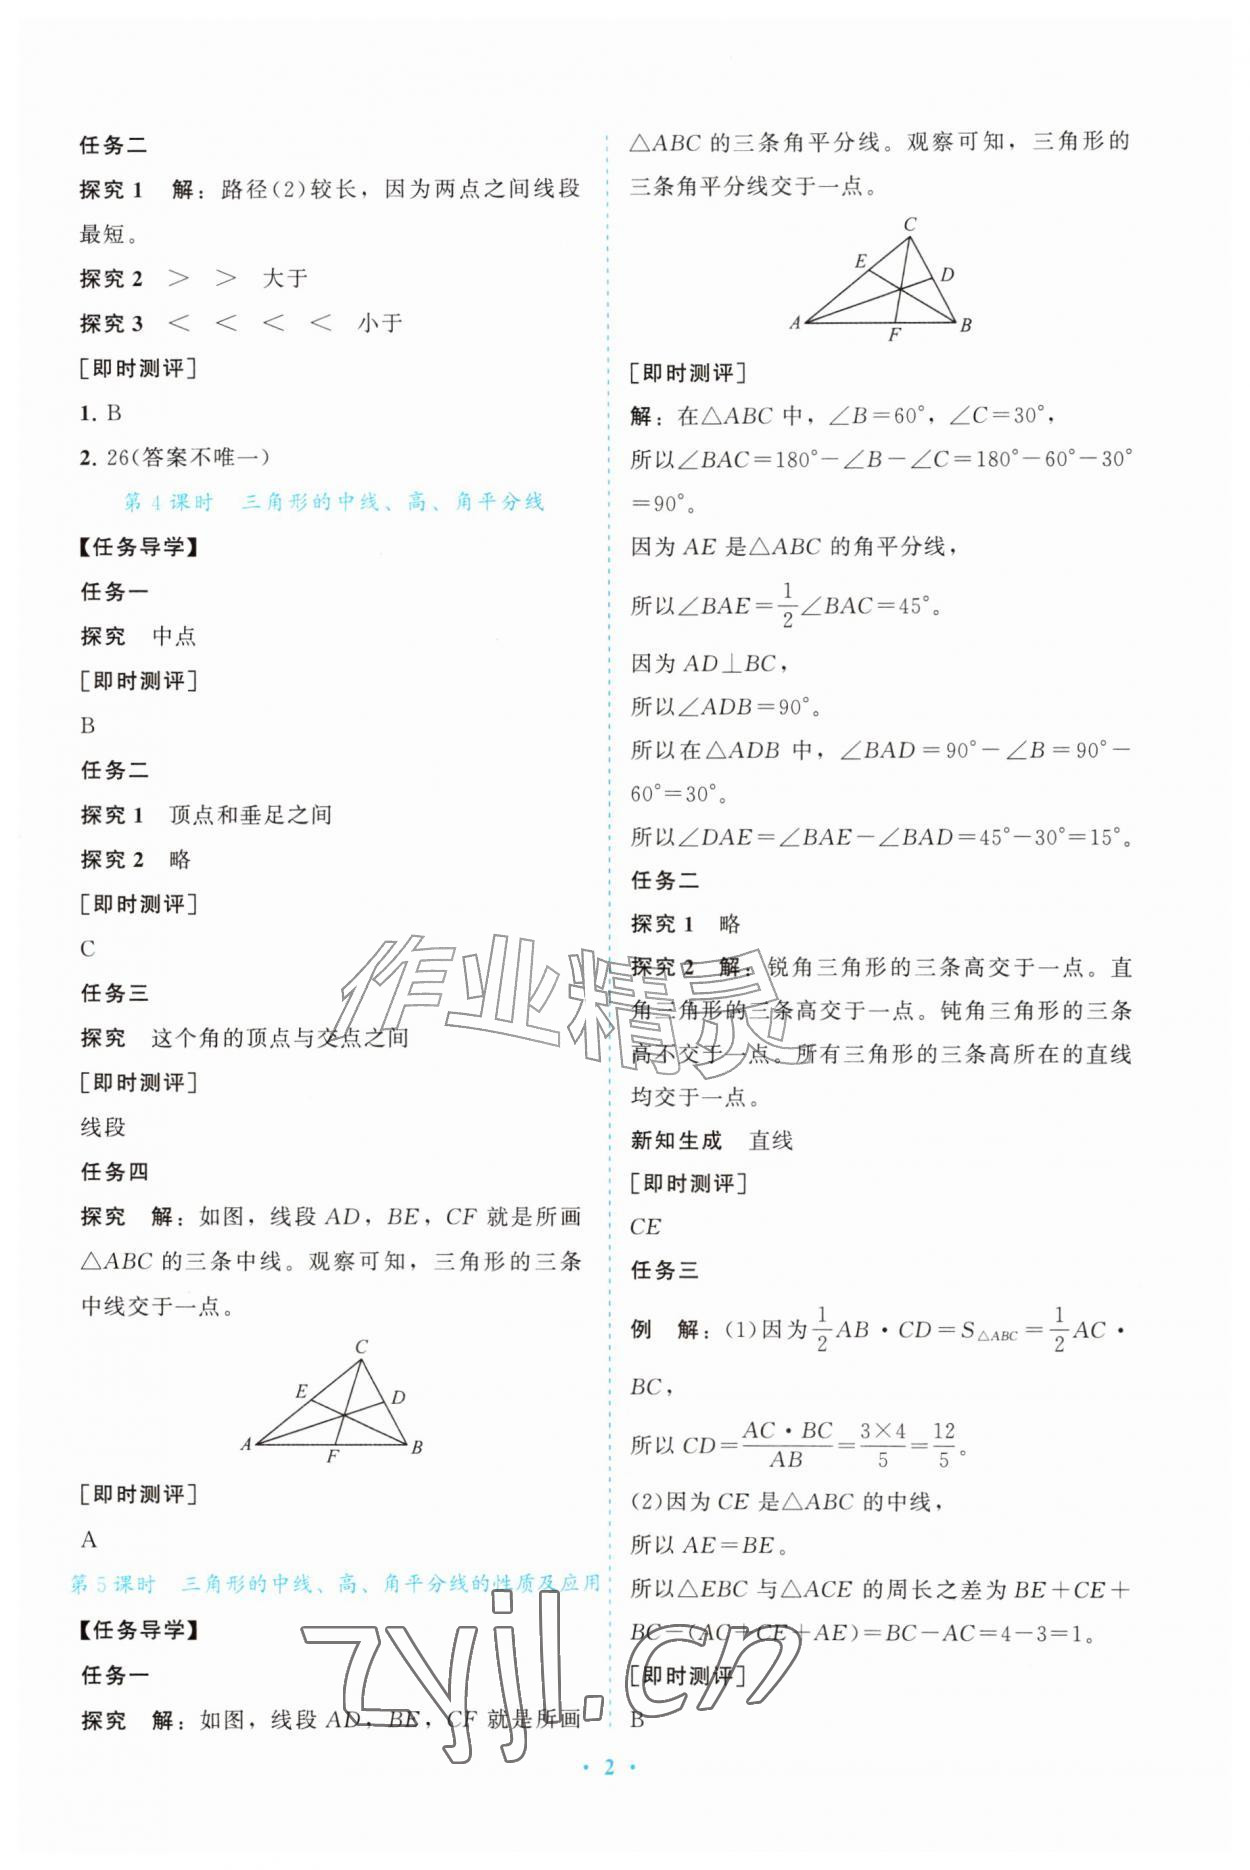 任务二
探究 1 解：路径(2)较长，因为两点之间线段
最短。
探究 2 ＞ ＞ 大于
探究 3 ＜ ＜ ＜ ＜ 小于
[即时测评]
1. B
2. 26(答案不唯一)
第 4 课时 三角形的中线、高、角平分线
【任务导学】
任务一
探究 中点
[即时测评]
B
任务二
探究 1 顶点和垂足之间
探究 2 略
[即时测评]
C
任务三
探究 这个角的顶点与交点之间
[即时测评]
线段
任务四
探究 解：如图，线段 AD，BE，CF 就是所画
△ABC 的三条中线。观察可知，三角形的三条
中线交于一点。
C
E
D
A
F
B
[即时测评]
A
第 5 课时 三角形的中线、高、角平分线的性质及应用
【任务导学】
任务一
探究 解：如图，线段 AD，BE，CF 就是所画
△ABC 的三条角平分线。观察可知，三角形的
三条角平分线交于一点。
C
E
D
A
F
B
[即时测评]
解：在△ABC 中，∠B＝60°，∠C＝30°，
所以∠BAC＝180°－∠B－∠C＝180°－60°－30°
＝90°。
因为 AE 是△ABC 的角平分线，
所以∠BAE＝1/2∠BAC＝45°。
因为 AD⊥BC，
所以∠ADB＝90°。
所以在△ADB 中，∠BAD＝90°－∠B＝90°－
60°＝30°。
所以∠DAE＝∠BAE－∠BAD＝45°－30°＝15°。
任务二
探究 1 略
探究 2 解：锐角三角形的三条高交于一点。直
角三角形的三条高交于一点。钝角三角形的三条
高不交于一点。所有三角形的三条高所在的直线
均交于一点。
新知生成 直线
[即时测评]
CE
任务三
例 解：(1)因为1/2AB·CD＝S△ABC＝1/2AC·
BC，
所以 CD＝AC·BC/AB＝3×4/5＝12/5。
(2)因为 CE 是△ABC 的中线，
所以 AE＝BE。
所以△EBC 与△ACE 的周长之差为 BE＋CE＋
BC－(AC＋CE＋AE)＝BC－AC＝4－3＝1。
[即时测评]
B
· 2 ·
作业精灵
zyjl.cn